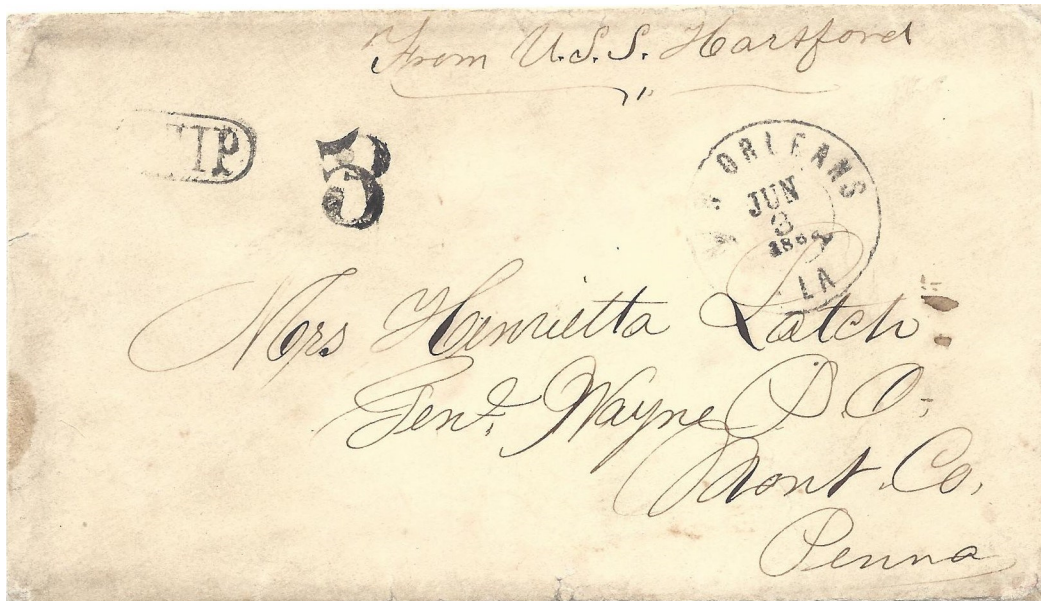 From U.S.S. Hartford
SHIP
3
NEW ORLEANS
JUN
3
LA
Mrs Henrietta Latch
Genl. Wayne P.O.
Mont. Co.
Penna